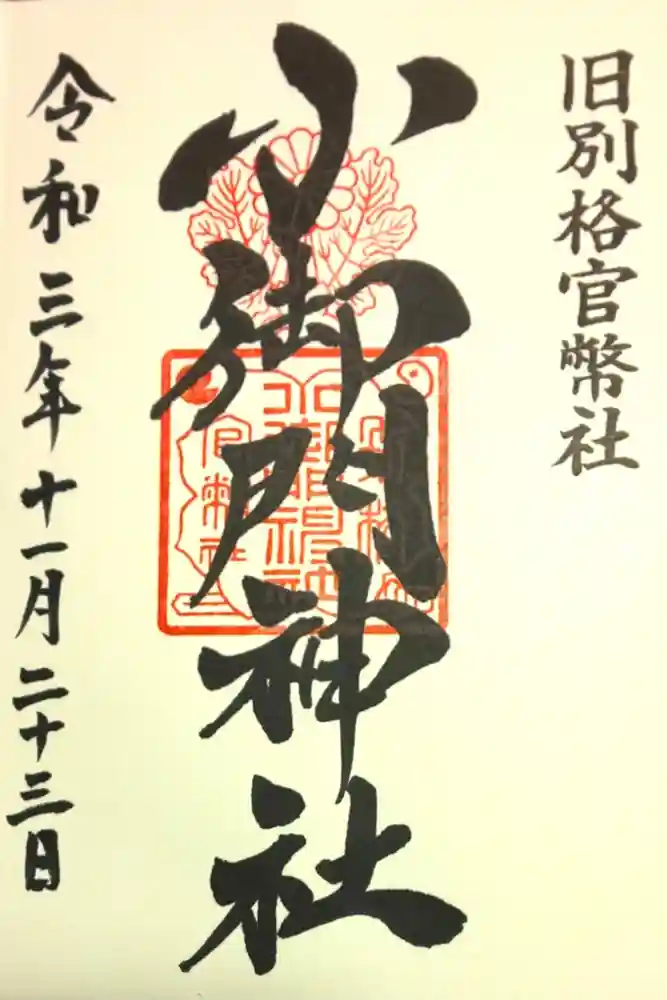 旧別格官幣社
小御門神社
令和三年十一月二十三日